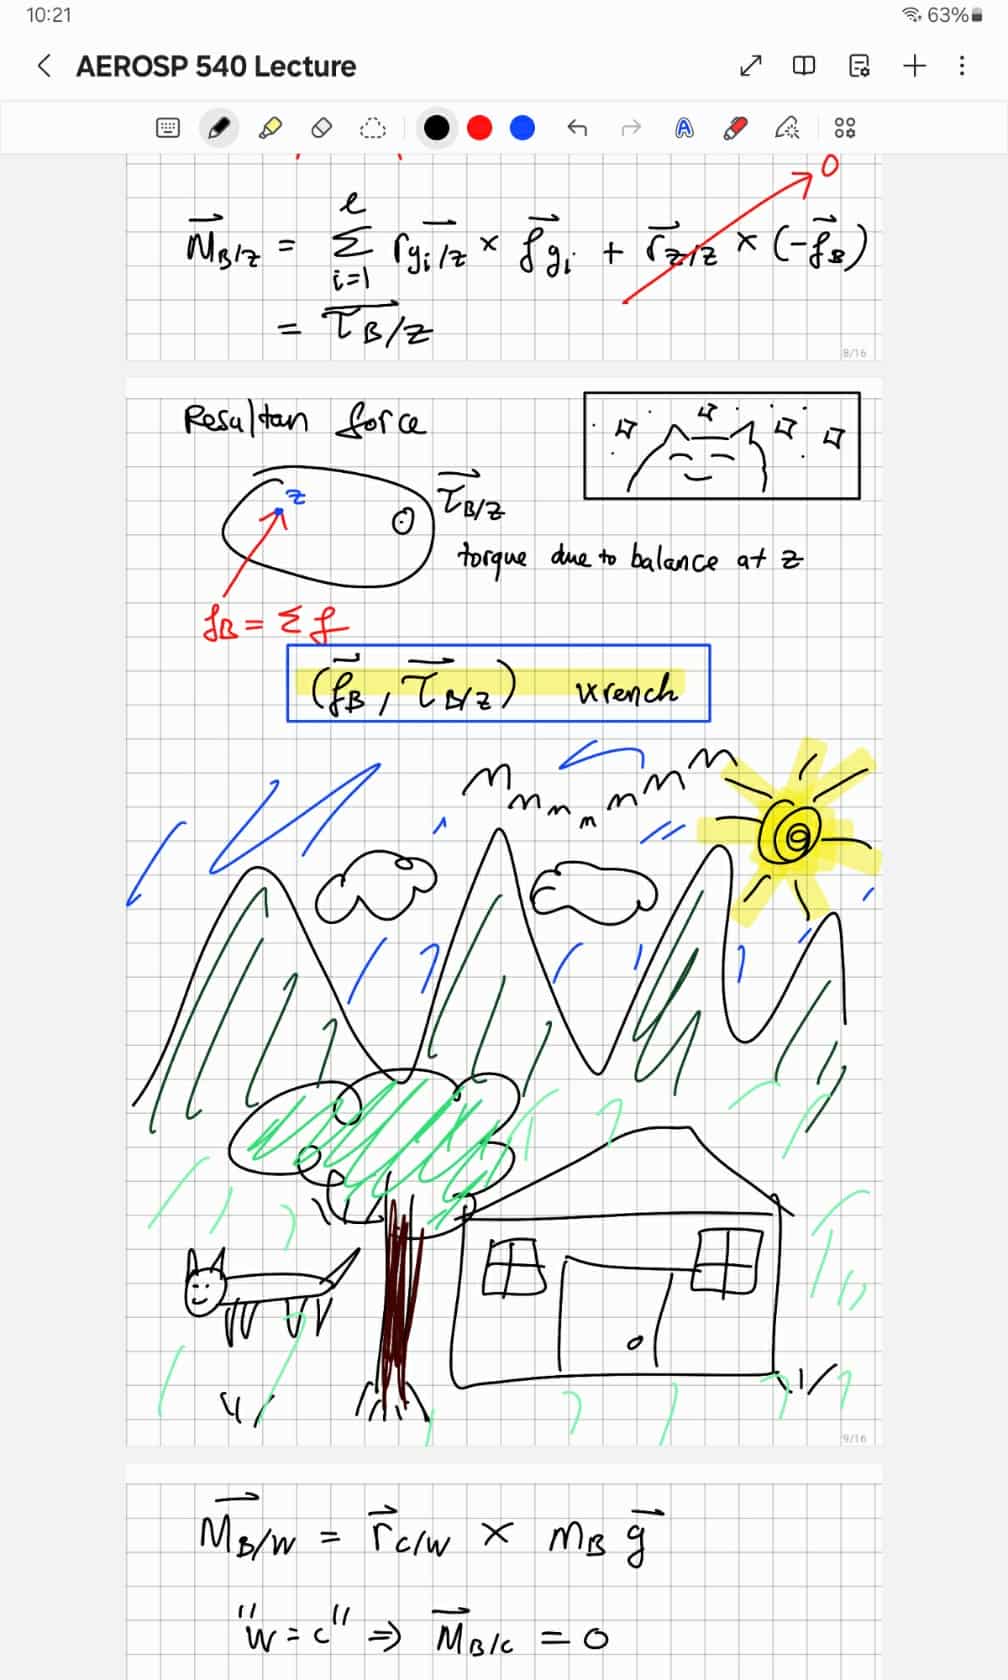 10:21 63%
AEROSP 540 Lecture
0
M⃗_B/z = Σ_{i=1}^{e} r⃗_{gi/z} × f⃗_{gi} + r⃗_{z/z} × (-f⃗_B)
= τ⃗_B/z
8/16
Resultan force
z
τ⃗_B/z
torque due to balance at z
f_B = Σ f
(f⃗_B, τ⃗_B/z) wrench
9/16
M⃗_B/w = r⃗_c/w × m_B g⃗
"w = c" ⇒ M⃗_B/c = 0